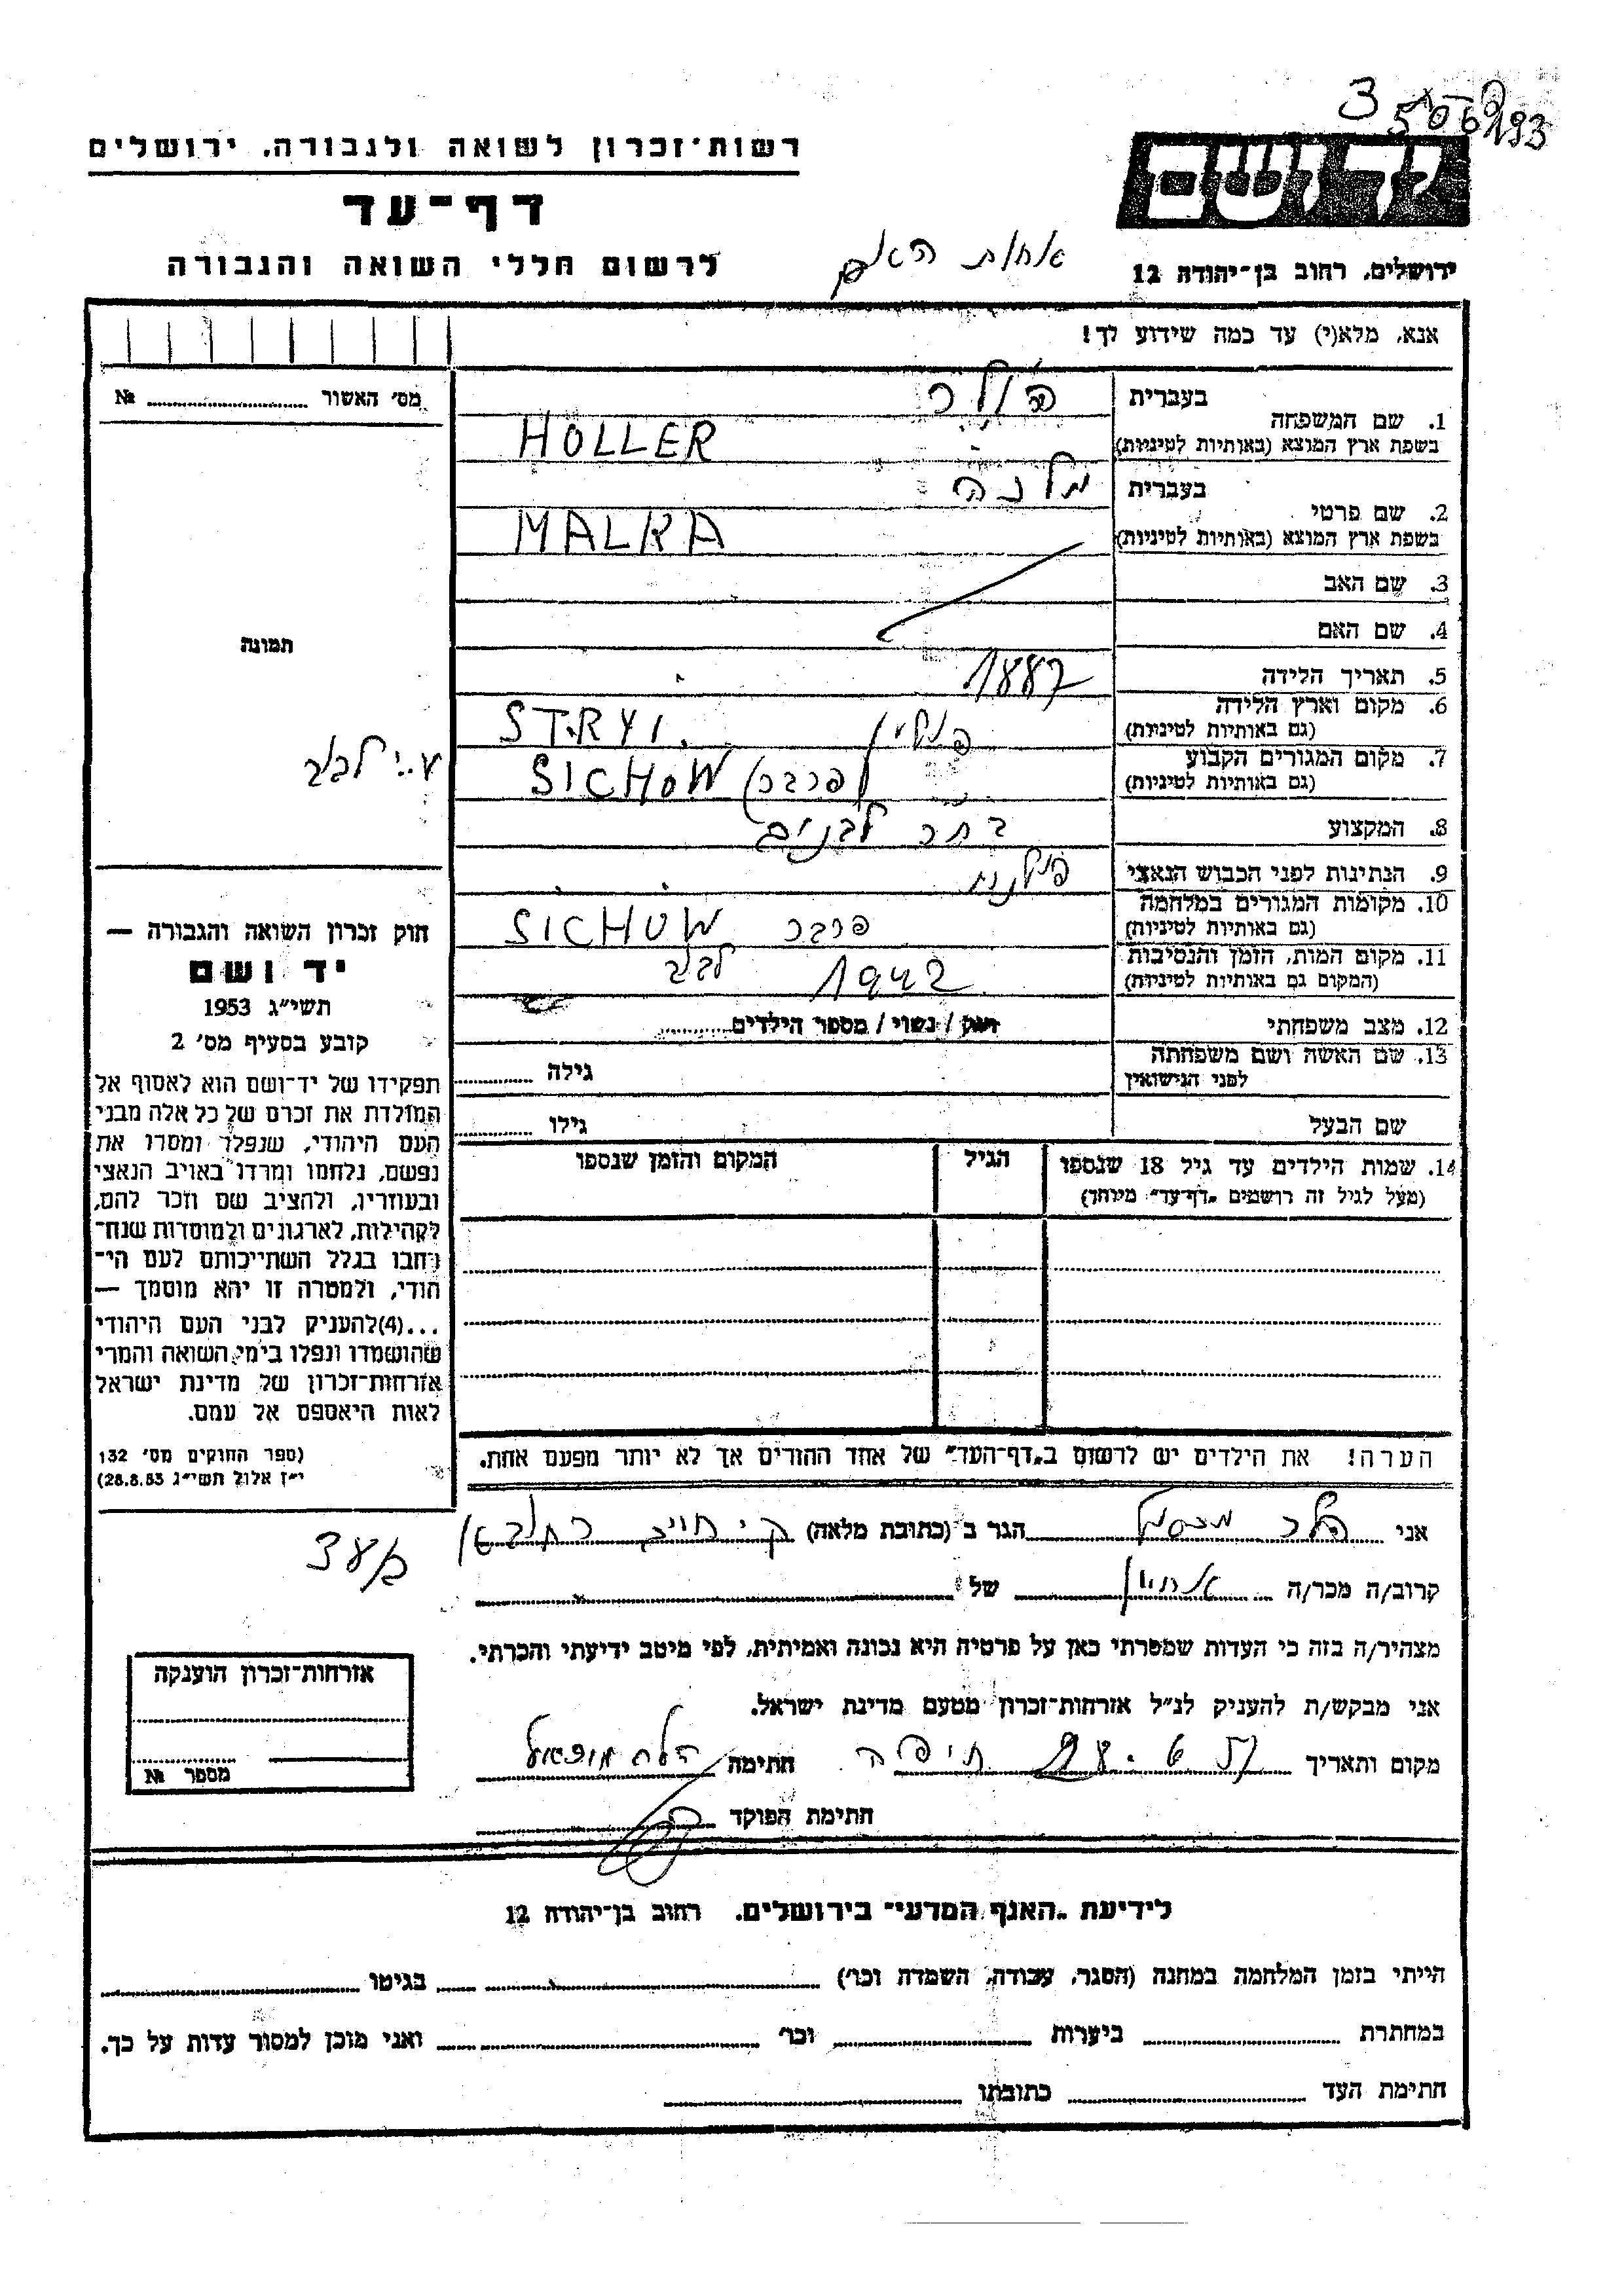 3
רשות־זכרון לשואה ולגבורה, ירושלים
יד ושם
דף־עד
לרשום חללי השואה והגבורה
אחות האם
ירושלים, רחוב בן־יהודה 12
אנא, מלא(י) עד כמה שידוע לך!
מס׳ האשור № 
בעברית
1. שם המשפחה
בשפת ארץ המוצא (באותיות לטיניות) HOLLER
בעברית
2. שם פרטי
בשפת ארץ המוצא (באותיות לטיניות) MALKA
3. שם האב
4. שם האם
תמונה
5. תאריך הלידה 1887
6. מקום וארץ הלידה פולין STRYI.
(גם באותיות לטיניות)
7. מקום המגורים הקבוע פרבר) SICHOW
(גם באותיות לטיניות)
ע״י לבוב
8. המקצוע לבנים
9. הנתינות לפני הכבוש הנאצי פולנית
10. מקומות המגורים במלחמה פרבר SICHOW
(גם באותיות לטיניות)
11. מקום המות, הזמן והנסיבות 1942 לבוב
(המקום גם באותיות לטיניות)
12. מצב משפחתי רווק / נשוי / מספר הילדים
13. שם האשה ושם משפחתה גילה
לפני הנישואין
שם הבעל גילו
14. שמות הילדים עד גיל 18 שנספו הגיל המקום והזמן שנספו
(מעל לגיל זה רושמים „דף־עד״ מיוחד)
חוק זכרון השואה והגבורה —
יד ושם
תשי״ג 1953
קובע בסעיף מס׳ 2
תפקידו של יד־ושם הוא לאסוף אל
המולדת את זכרם של כל אלה מבני
העם היהודי, שנפלו ומסרו את
נפשם, נלחמו ומרדו באויב הנאצי
ובעוזריו, ולהציב שם וזכר להם,
לקהילות, לארגונים ולמוסדות שנח־
רבו בגלל השתייכותם לעם הי־
הודי, ולמטרה זו יהא מוסמך —
...(4)להעניק לבני העם היהודי
שהושמדו ונפלו בימי השואה והמרי
אזרחות־זכרון של מדינת ישראל
לאות היאספם אל עמם.
(ספר החוקים מס׳ 132
י״ז אלול תשי״ג 28.8.53)
הערה! את הילדים יש לרשום ב„דף־העד״ של אחד ההורים אך לא יותר מפעם אחת.
אני הגר ב (כתובת מלאה)
קרוב/ה מכר/ה אחיין של
מצהיר/ה בזה כי העדות שמסרתי כאן על פרטיה היא נכונה ואמיתית, לפי מיטב ידיעתי והכרתי.
אני מבקש/ת להעניק לנ״ל אזרחות־זכרון מטעם מדינת ישראל.
מקום ותאריך חיפה חתימה
חתימת הפוקד
אזרחות־זכרון הוענקה
מספר №
לידיעת „האגף המדעי״ בירושלים, רחוב בן־יהודה 12
הייתי בזמן המלחמה במחנה (הסגר, עבודה, השמדה וכו׳) בגיטו
במחתרת ביערות וכו׳ ואני מוכן למסור עדות על כך.
חתימת העד כתובתו